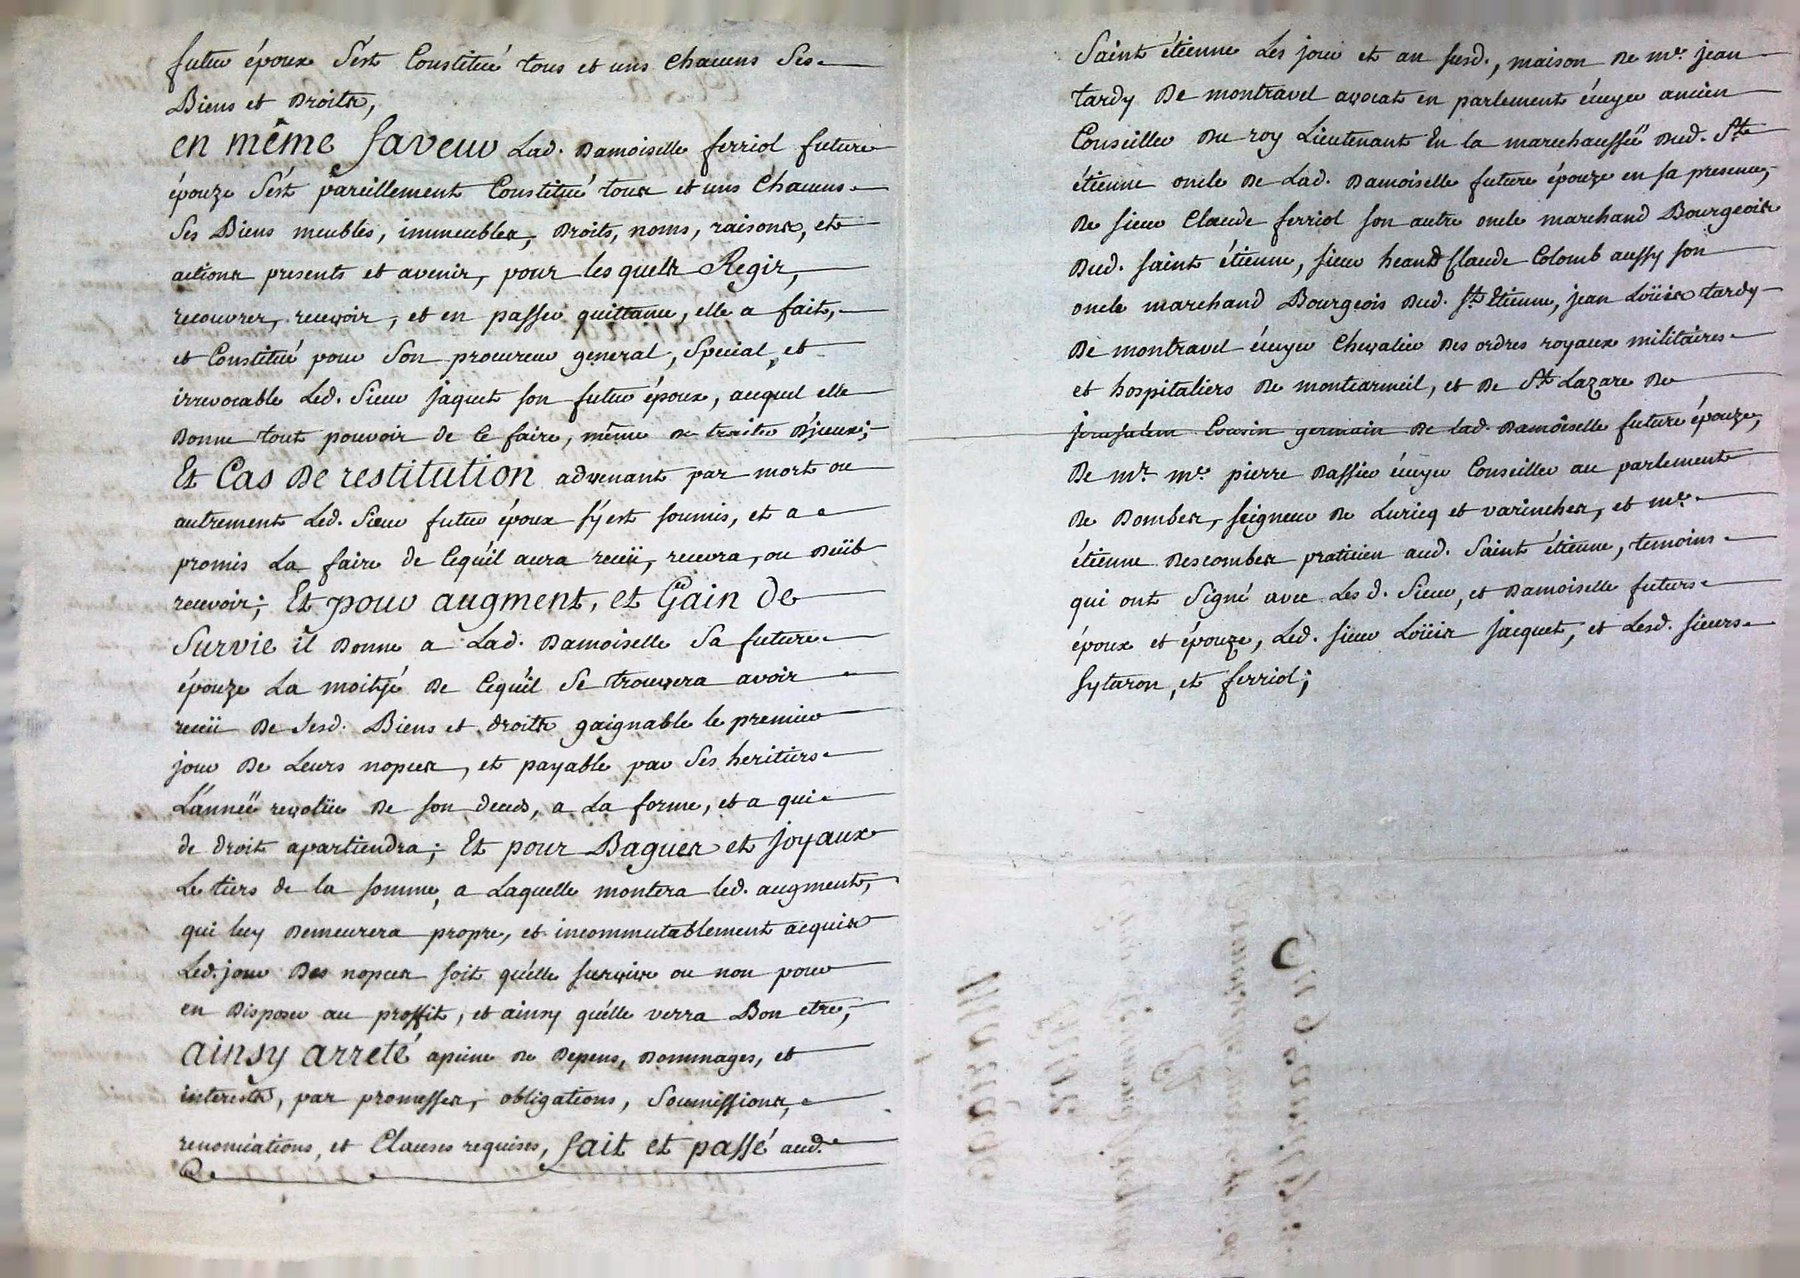 futur époux s'est Constitué tous et uns chacuns ses
Biens et Droits,
en même faveur Lad. Damoiselle ferriol future
épouze s'ést pareillement Constitué tous et uns chacuns
ses Biens meubles, immeubles, Droits, noms, raisons, et
actions presents et avenir, pour lesquels Regir,
recouvrer, recevoir, et en passer quittance, elle a fait,
et Constitué pour son procureur general, special, et
irrevocable Led. Sieur jaquet son futur époux, auquel elle
Donne tout pouvoir de ce faire, même de traiter D'jceux;
Et Cas De restitution advenant par mort ou
autrement Led. Sieur futur époux s'y est soumis, et a
promis La faire de cequ'il aura reçü, recevra, ou Deüb
recevoir; Et pour augment, et Gain de
Survie il Donne a Lad. Damoiselle Sa future
épouze La moitjé De cequ'il se trouvera avoir
reçü De sesd. Biens et droits gaignable le premier
jour De Leurs nopces, et payable par ses heritiers
L'annéë revolüe De son deceds, a La forme, et a qui
de droit apartiendra; Et pour Bagues et joyaux
Le tiers de la somme, a Laquelle montera led. augment,
qui luy Demeurera propre, et incommutablement acquis
Led. jour Des nopces soit qu'elle survive ou non pour
en Disposer au proffit, et ainsy qu'elle verra Bon etre,
ainsy arreté apeine De Depens, Dommages, et
interests, par promesses, obligations, Soumissions,
renonciations, et Clauses requises, fait et passé aud.
Saint étienne Les jour et an susd., maison De mr. jean
tardy De montravel avocat en parlement écuyer ancien
Conseiller Du roy Lieutenant En la marechausséë Dud. St.
étienne oncle De Lad. Damoiselle future épouze en sa presence,
De sieur Claude ferriol son autre oncle marchand Bourgeois
Dud. saint étienne, sieur Claude Colomb aussy son
oncle marchand Bourgeois Dud. St. Etienne, jean Loüis tardy
De montravel écuyer chevalier Des ordres royaux militaires
et hospitaliers De montcarmeil, et De St. Lazare De
jerusalem Cousin germain De Lad. Damoiselle future épouze,
De mr. me. pierre Dassier écuyer Conseiller au parlement
De Dombes, seigneur De Luricq et varinches, et me.
étienne Descombes praticien aud. Saint étienne, temoins
qui ont Signé avec Les d. Sieur, et Damoiselle futurs
époux et épouze, Led. sieur Loüis jacquet, et Lesd. sieurs
sytaron, et ferriol;